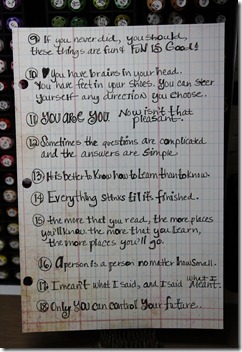 ⑨ If you never did, you should,
these things are fun & FUN IS Good!
⑩ ♥ You have brains in your head.
You have feet in your shoes. You can steer
yourself any direction you choose.
⑪ YOU ARE YOU. Now isn't that
pleasant.
⑫ Sometimes the questions are complicated
and the answers are simple
⑬ It is better to know how to learn than to know.
⑭ Everything stinks til its finished.
⑮ the more that you read, the more places
you'll know the more that you learn,
the more places you'll go.
⑯ A person is a person no matter how small.
⑰ I meant what I said, and I said what I
meant.
⑱ Only YOU can control your future..